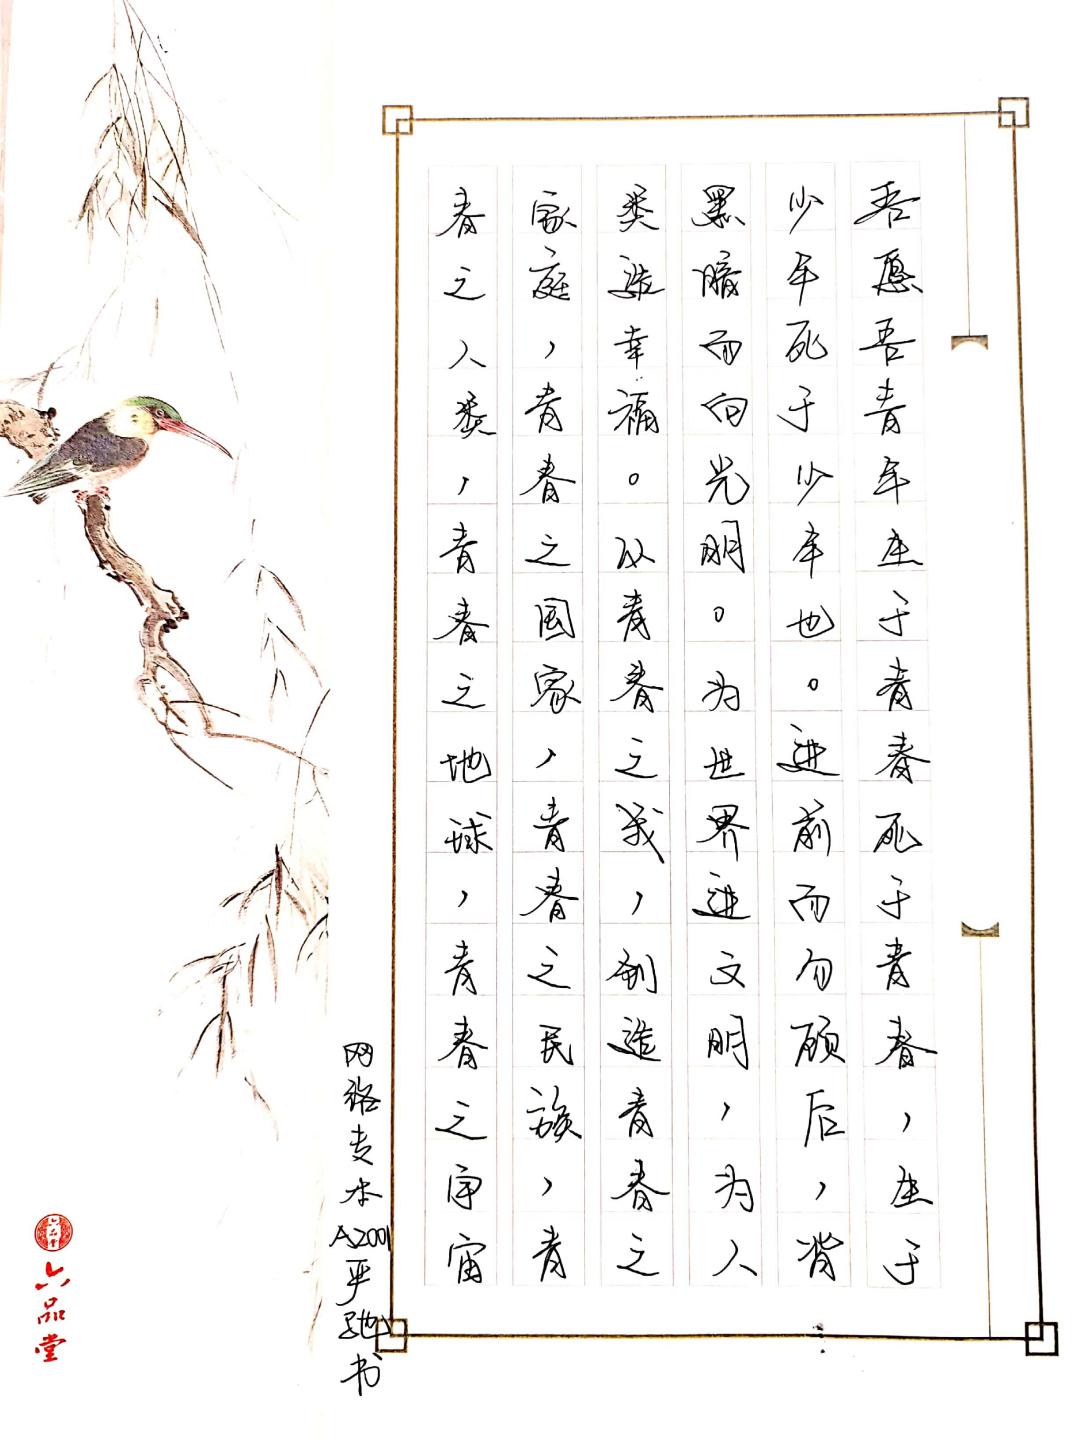 吾愿吾青年生于青春死于青春，生于
少年死于少年也。进前而勿顾后，背
黑暗而向光明。为世界进文明，为人
类造幸福。以青春之我，创造青春之
家庭，青春之国家，青春之民族，青
春之人类，青春之地球，青春之宇宙
网络专本A2001严驰书
六品堂
六品堂